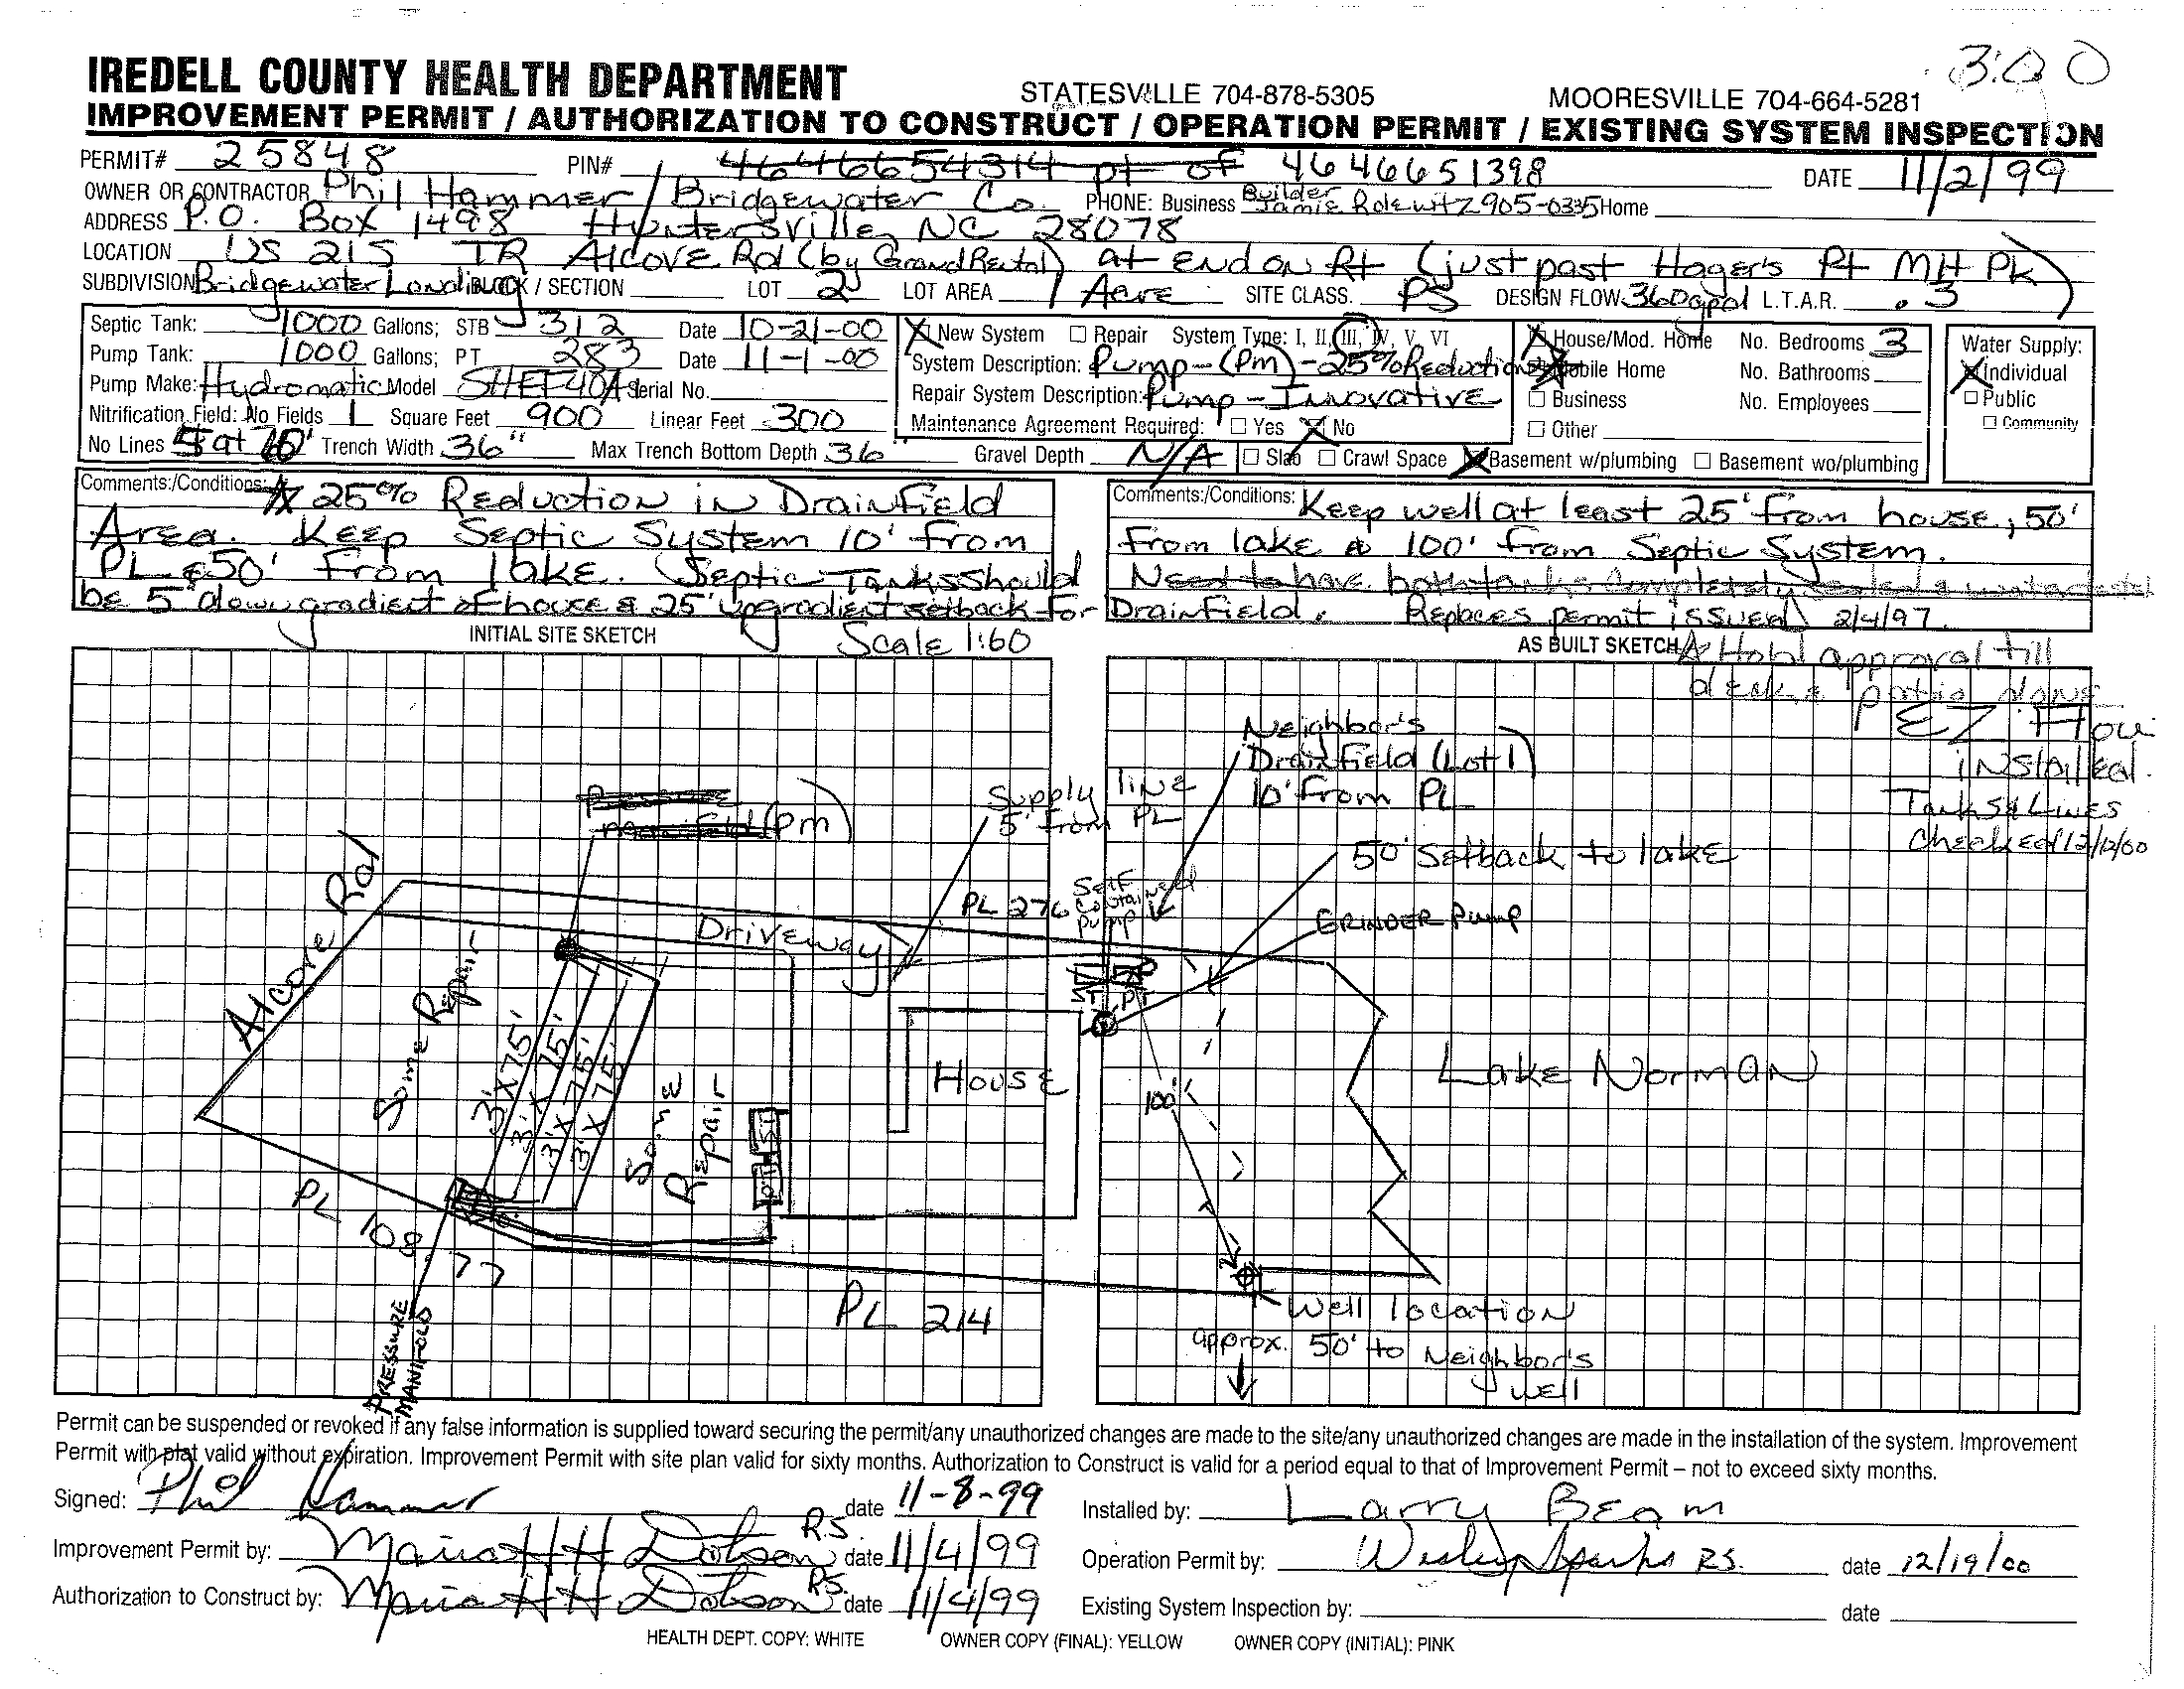 3:00
IREDELL COUNTY HEALTH DEPARTMENT STATESVILLE 704-878-5305 MOORESVILLE 704-664-5281
IMPROVEMENT PERMIT / AUTHORIZATION TO CONSTRUCT / OPERATION PERMIT / EXISTING SYSTEM INSPECTION
PERMIT# 25848 PIN# 4646654314 pt of 4646651398 DATE 11/2/99
OWNER OR CONTRACTOR Phil Hammer / Bridgewater Co. PHONE: Business Builder Jamie Rolewitz 905-0335 Home
ADDRESS P.O. Box 1498 Huntersville, NC 28078
LOCATION US 21S TR Alcove Rd (by Grand Rental) at end on Rt (just past Hager's Pt MH Pk)
SUBDIVISION Bridgewater Landing BLOCK / SECTION LOT 2 LOT AREA 1 Acre SITE CLASS. PS DESIGN FLOW 360 gpd L.T.A.R. .3
Septic Tank: 1000 Gallons; STB 312 Date 10-21-00
Pump Tank: 1000 Gallons; PT 283 Date 11-1-00
Pump Make: Hydromatic Model SHEF40A Serial No.
Nitrification Field: No Fields 1 Square Feet 900 Linear Feet 300
No Lines at Trench Width 36" Max Trench Bottom Depth 36" Gravel Depth N/A
New System Repair System Type: I, II, III, IV, V, VI
System Description: Pump-(Pm)-25% Reduction
Repair System Description: Pump-Innovative
Maintenance Agreement Required: Yes No
House/Mod. Home No. Bedrooms 3
Mobile Home No. Bathrooms
Business No. Employees
Other
Slab Crawl Space Basement w/plumbing Basement wo/plumbing
Water Supply:
Individual
Public
Community
Comments:/Conditions: 25% Reduction in Drainfield
Area. Keep Septic System 10' from
PL & 50' from lake. Septic Tanks should
be 5' downgradient of house & 25' upgradient setback for Drainfield.
Comments:/Conditions: Keep well at least 25' from house, 50'
from lake & 100' from Septic System.
Need to have both tanks completely
Replaces permit issued 2/4/97.
INITIAL SITE SKETCH Scale 1:60
AS BUILT SKETCH Hold approval till
EZ Flow
installed.
Tanks & Lines
Checked 12/12/00
Neighbor's
Drainfield (Lot 1)
10' from PL
Supply line
5' from PL
(Pm)
50' Setback to lake
Self
contained
pump
PL 276
GRINDER PUMP
Driveway
Alcove Rd
Some Repair
3' X 75'
3' X 75'
3' X 75'
3' X 75'
Some
Repair
ST
PT
ST PT
HOUSE
100'
Lake Norman
PL 108.77
PL 214
PRESSURE
MANIFOLD
Well location
approx. 50' to Neighbor's
well
Permit can be suspended or revoked if any false information is supplied toward securing the permit/any unauthorized changes are made to the site/any unauthorized changes are made in the installation of the system. Improvement
Permit with plat valid without expiration. Improvement Permit with site plan valid for sixty months. Authorization to Construct is valid for a period equal to that of Improvement Permit – not to exceed sixty months.
Signed: Phil Hammer date 11-8-99 Installed by: Larry Beam
Improvement Permit by: Maria H H Dotson R.S. date 11/4/99 Operation Permit by: Wesley Sparks RS. date 12/19/00
Authorization to Construct by: Maria H H Dotson RS. date 11/4/99 Existing System Inspection by: date
HEALTH DEPT. COPY: WHITE OWNER COPY (FINAL): YELLOW OWNER COPY (INITIAL): PINK